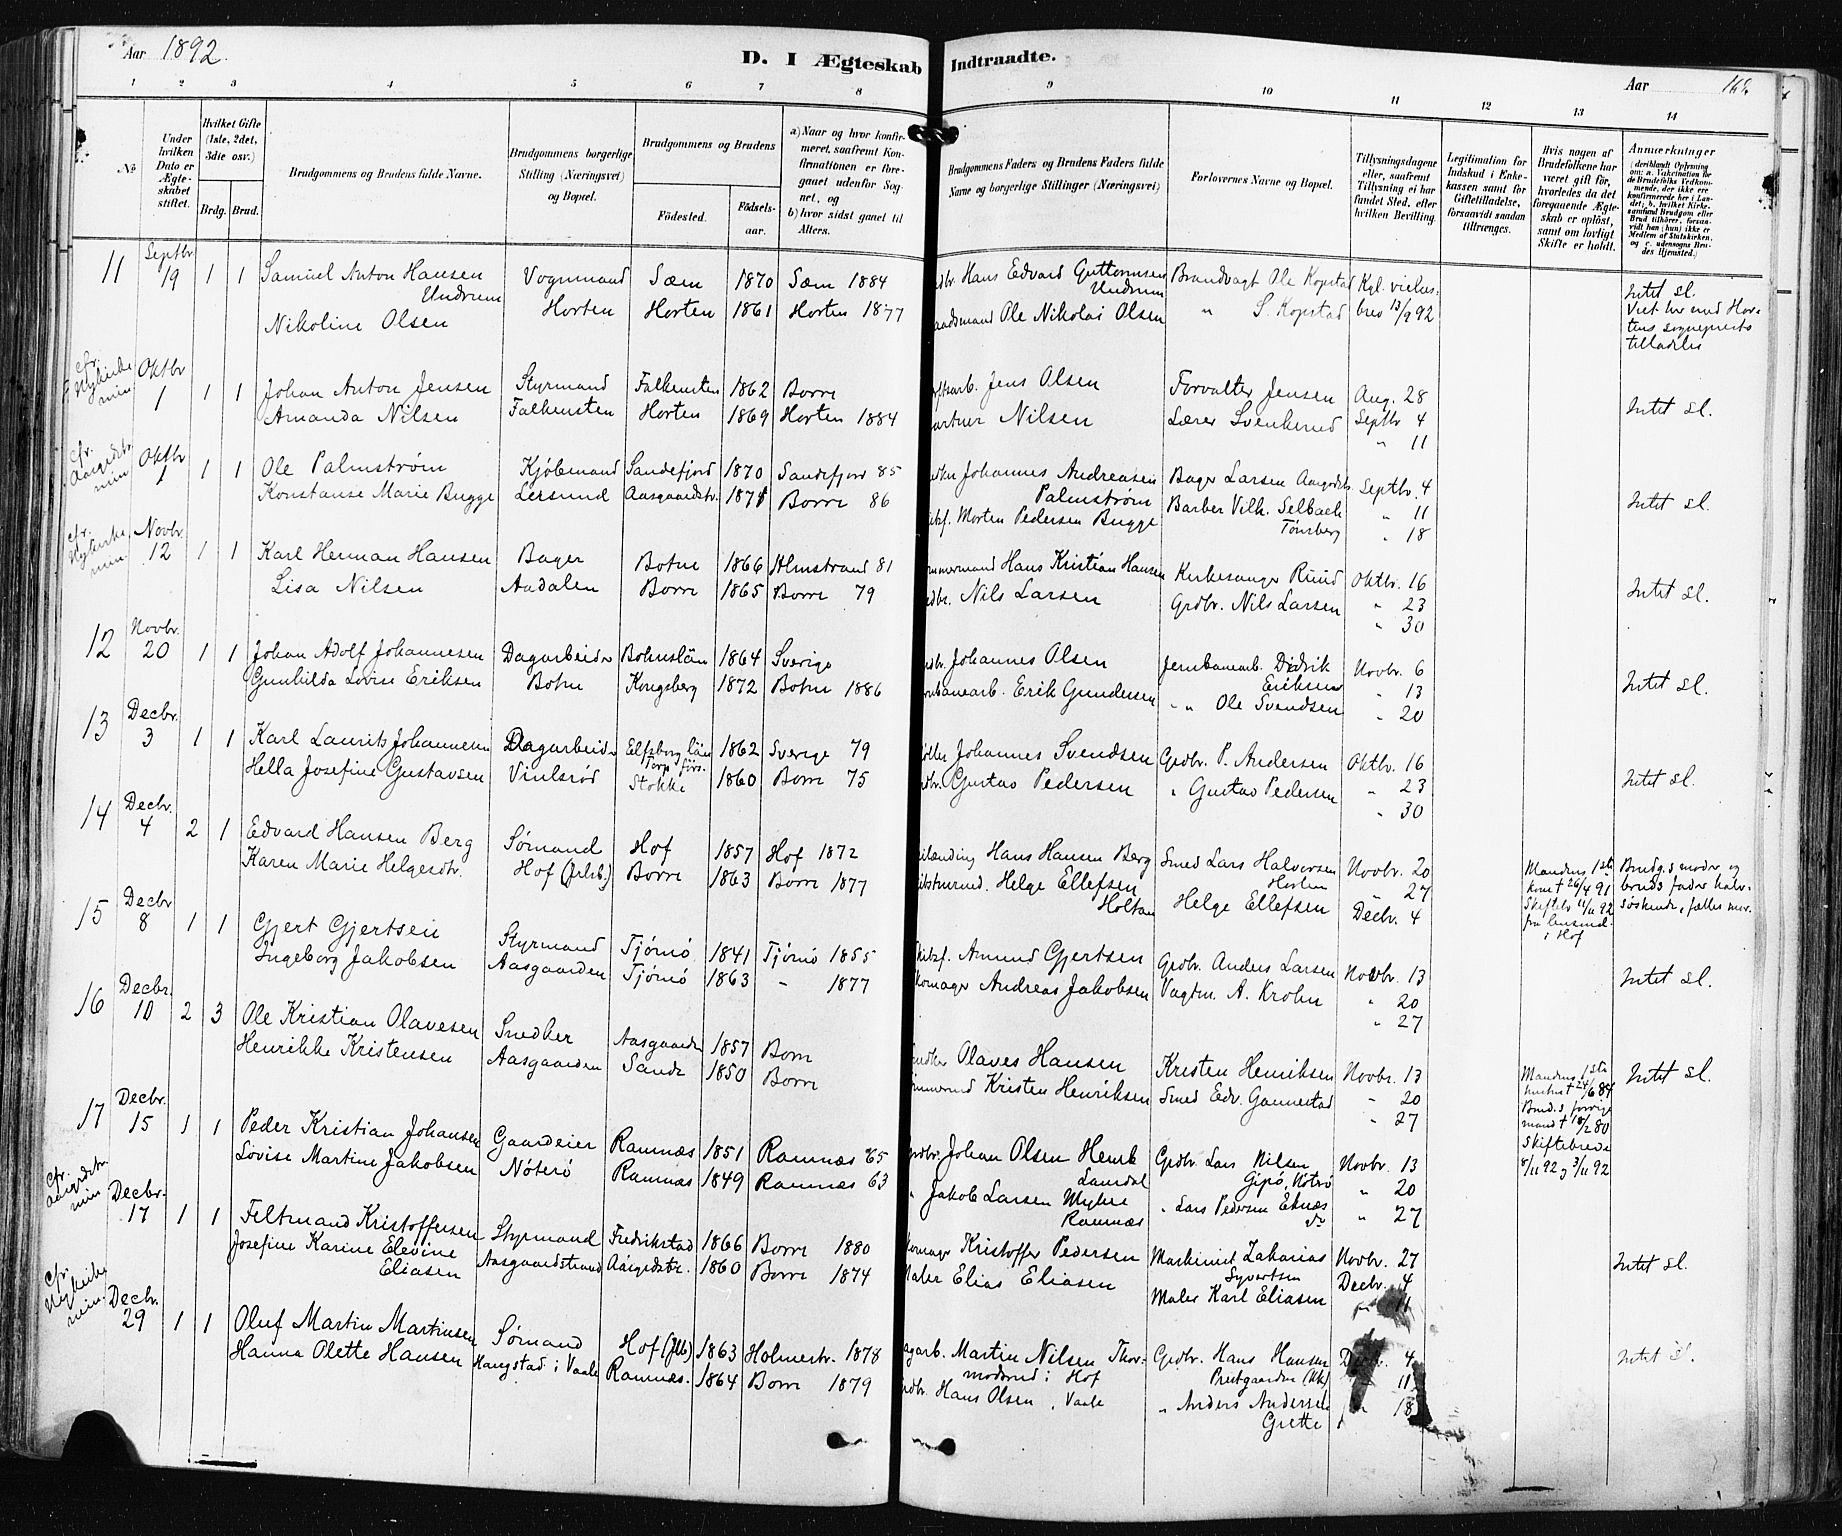 Aar 1892.
D. I Ægteskab Indtraadte.
Aar 166.
1 2 3 4 5 6 7 8 9 10 11 12 13 14
No
Under hvilken Dato er Ægteskabet stiftet.
Hvilket Gifte (1ste, 2det, 3die osv.)
Brdg. Brud.
Brudgommens og Brudens fulde Navne.
Brudgommens borgerlige Stilling (Næringsvei) og Bopæl.
Brudgommens og Brudens
Födested. Födselsaar.
a) Naar og hvor konfirmeret, saafremt Konfirmationen er foregaaet udenfor Sognet, og
b) hvor sidst gaaet til Alters.
Brudgommens Faders og Brudens Faders fulde Navne og borgerlige Stillinger (Næringsvei)
Forlovernes Navne og Bopæl.
Tillysningsdagene eller, saafremt Tillysning ei har fundet Sted, efter hvilken Bevilling.
Legitimation for Indskud i Enkekassen samt for Giftetilladelse, forsaavidt saadan tiltrænges.
Hvis nogen af Brudefolkene har været gift før, hvorledes da det foregaaende Ægteskab er opløst, samt om lovligt Skifte er holdt.
Anmærkninger
11 Septbr. 19 1 1 Samuel Anton Hansen Undrum Vognmand Sæm 1870 Sæm 1884 Hans Edvard Guttormsen Undrum Brandvagt Ole Kopstad Kgl. vielses- Intet sl.
Nikoline Olsen Horten Horten 1861 Horten 1877 Ole Nikolai Olsen " S. Kopstad brev 13/9 92 Viet her med Hortens sogneprests tilladelse
cfr. Nykirke min Oktbr 1 1 1 Johan Anton Jensen Styrmand Falkensten 1862 Borre Jens Olsen Forvalter Jensen Aug. 28
Amanda Nilsen Falkensten Horten 1869 Horten 1884 Nilsen Lærer Svenkerud Septbr 4 Intet sl.
" 11
cfr. Aargdstr. min Oktbr 1 1 1 Ole Palmstrøm Kjøbmand Sandefjord 1870 Sandefjord 85 Johannes Andreasen Palmstrøm Bager Larsen Aargdstr. Septbr. 4
Konstanse Marie Bugge Lersund Aasgaardstr. 1871 Borre 86 Morten Pedersen Bugge Barber Vilh. Selback Tønsberg " 11 Intet sl.
" 18
cfr. Nykirke min Novbr. 12 1 1 Karl Herman Hansen Bager Botne 1866 Holmstrand 81 Hans Kristian Hansen Kirkesanger Ruud Oktbr. 16
Lisa Nilsen Aadalen Borre 1865 Borre 79 Nils Larsen Grdbr. Nils Larsen " 23 Intet sl.
" 30
12 Novbr. 20 1 1 Johan Adolf Johannesen Dagarbeider Bohuslän 1864 Sverige Johannes Olsen Jernbanearb. Didrik Eriksen Novbr. 6
Gunhilda Lovise Eriksen Botne Kongsberg 1872 Botne 1886 Erik Gundersen " " Ole Svendsen " 13 Intet sl.
" 20
13 Decbr. 3 1 1 Karl Laurits Johannesen Dagarbeider Elfsborg län 1862 Sverige 79 Johannes Svendsen Grdbr. P. Andersen Oktbr. 16
Hella Josefine Gustavsen Vinlsrød Stokke 1860 Borre 75 Gustav Pedersen " Gustav Pedersen " 23 Intet sl.
" 30
14 Decbr. 4 2 1 Edvard Hansen Berg Sømand Hof 1857 Hof 1872 Hans Hansen Berg Smed Lars Halvorsen Horten Novbr. 20 Mandens 1ste kone † 26/4 91 Skiftebr. 11/11 92 fra lensmd. i Hof Brudg.s moder og bruds fader halvsøskende, fælles mor.
Karen Marie Helgesdtr. Hof (Jrlsb.) Borre 1863 Borre 1877 Helge Ellefsen Holtan Helge Ellefsen " 27
Decbr. 4
15 Decbr 8 1 1 Gjert Gjertsen Styrmand Tjømø 1841 Tjømø 1855 Amund Gjertsen Grdbr. Anders Larsen Novbr. 13
Ingeborg Jakobsen Aasgaarden Tjømø 1863 " 1877 Andreas Jakobsen Vagtm. A. Krohn " 20 Intet sl.
" 27
16 Decbr. 10 2 3 Ole Kristian Olavesen Snedker Aasgaarden 1857 Borre Olaves Hansen Kristen Henriksen Novbr. 13 Mandens 1ste hustru † 24/6 84 Intet sl.
Henrikke Kristensen Aasgaarden Sande 1850 Borre Kristen Henriksen Smed Edv. Gannestad " 20 Brud.s forrige mand † 18/2 80
" 27 Skiftebreve 8/11 92 og 3/11 92
17 Decbr. 15 1 1 Peder Kristian Johansen Gaardeier Ramnæs 1851 Ramnæs 65 Johan Olsen Henrk Lamdal Grdbr. Lars Nilsen Gipø, Nøterø Novbr. 13
Lovise Martine Jakobsen Nøterø Ramnæs 1849 Ramnæs 63 Jakob Larsen Myhre Ramnæs " Lars Pedersen Eknæs do " 20
" 27
cfr. Aargdstr. min Decbr. 17 1 1 Feltmand Kristoffersen Styrmand Fredrikstad 1866 Borre 1880 Kristoffer Pedersen Maskinist Zakarias Syvertsen Novbr. 27
Josefine Karine Elevine Eliasen Aasgaardstrand Aargdstr. 1860 Borre 1874 Maler Elias Eliasen Maler Karl Eliasen Decbr. 4 Intet sl.
" 11
cfr. Nykirke min. Decbr. 29 1 1 Oluf Martin Martinsen Sømand Hof (Jlb) 1863 Holmestr. 1878 Martin Nilsen Thormodsrud i Hof Grdbr. Hans Hansen Prestgaarden Decbr. 4
Hanna Olette Hansen Haugstad i Vaale Ramnæs. 1864 Borre 1879 Hans Olsen, Vaale " Anders Andersen Grette " 11 Intet sl.
" 18